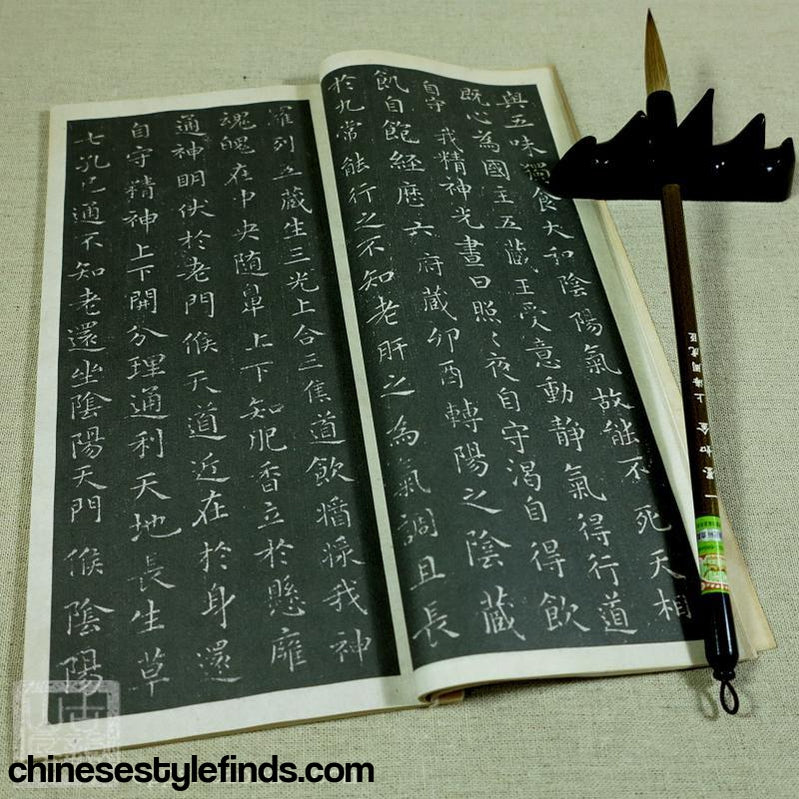 與五味獨食大和陰陽氣故能不死天相
既心為國主五藏王受意動靜氣得行道
自守我精神光晝日照〻夜自守渴自得飲
飢自飽經歷六府藏卯酉轉陽之陰藏
於九常能行之不知老肝之為氣調且長
羅列五藏生三光上合三焦道飲漿我神
魂魄在中央隨鼻上下知肥香立於懸雍
通神明伏於老門候天道近在於身還
自守精神上下開分理通利天地長生草
七孔已通不知老還坐陰陽天門候陰陽
一墨如金 上海周虎臣
chinesestylefinds.com